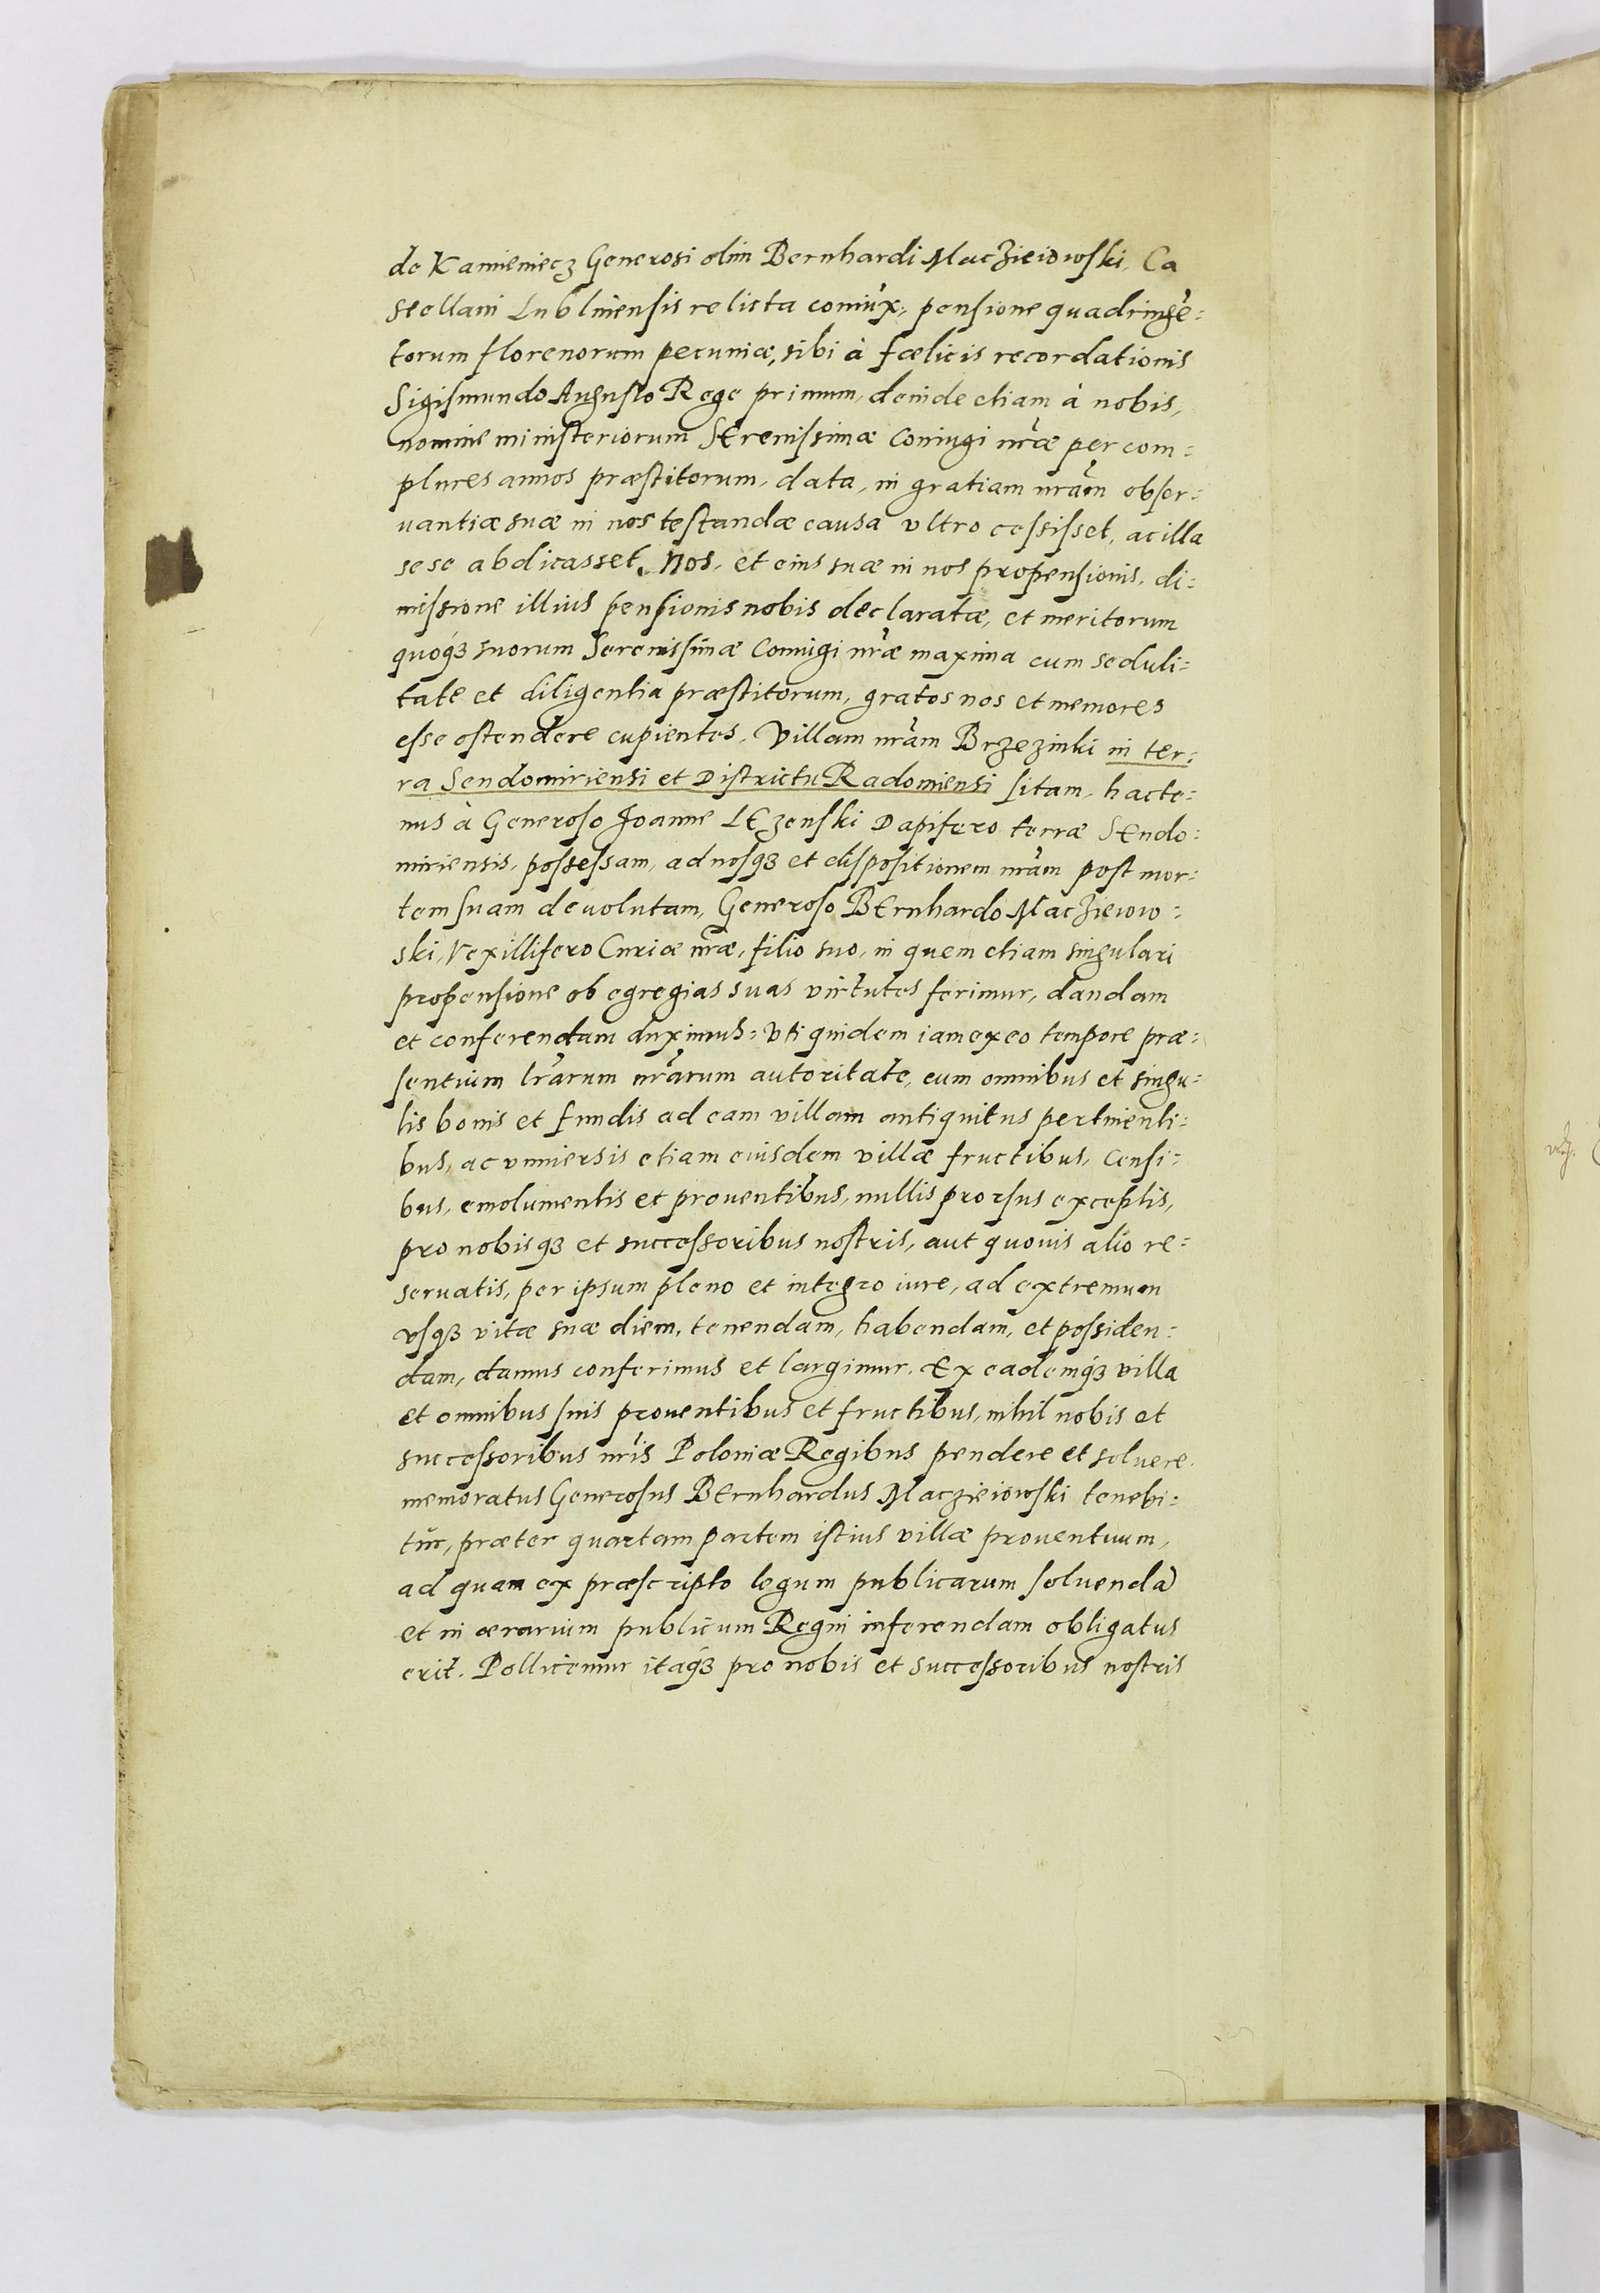 de Kamieniecz Generosi olim Bernhardi Maczieiowski, Ca
stellani Lublinensis relicta coniux, pensione quadringē=
torum florenorum pecuniæ, sibi à fælicis recordationis
Sigismundo Augusto Rege primum, deinde etiam à nobis,
nomine ministeriorum Serenissimæ Coniugi nr̃æ per com=
plures annos præstitorum, data, in gratiam nr̃am obser=
uantiæ suæ in nos testandæ causa vltro cessisset, ac illa
sese abdicasset. Nos, et eius suæ in nos propensionis, di=
missione illius pensionis nobis declaratæ, et meritorum
quoq3 suorum Serenissimæ Coniugi nr̃æ maxima cum seduli=
tate et diligentia præstitorum, gratos nos et memores
esse ostendere cupientes, Villam nr̃am Brzezinki in ter=
ra Sendomiriensi et Districtu Radomiensi sitam, hacte=
nus à Generoso Joanne LEzenski Dapifero terræ SEndo=
miriensis, possessam, ad nosq3 et dispositionem nr̃am post mor=
tem suam deuolutam, Generoso BErnhardo Maczieiow=
ski, Vexillifero Curiæ nr̃æ, filio suo, in quem etiam singulari
propensione ob egregias suas virtutes ferimur, dandam
et conferendam duximus: Vti quidem iam ex eo tempore præ=
sentium lr̃arum nr̃arum autoritate, cum omnibus et singu=
lis bonis et fundis ad eam villam antiquitus pertinenti=
bus, ac vniuersis etiam eiusdem villæ fructibus, censi=
bus, emolumentis et prouentibus, nullis prorsus exceptis,
pro nobisq3 et successoribus nostris, aut quouis alio re=
seruatis, per ipsum pleno et integro iure, ad extremum
vsq3 vitæ suæ diem, tenendam, habendam, et possiden=
dam, damus conferimus et largimur. Ex eademq3 villa
et omnibus suis prouentibus et fructibus, nihil nobis et
successoribus nr̃is Poloniæ Regibus pendere et soluere
memoratus Generosus BErnhardus Maczieiowski tenebi=
tur, præter quartam partem istius villæ prouentuum,
ad quam ex præscripto legum publicarum soluendã
et in ærarium publicum Regni inferendam obligatus
erit. Pollicemur itaq3 pro nobis et successoribus nostris